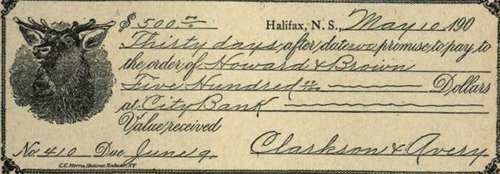 $ 500.00 Halifax, N.S., May 10, 190
Thirty days, after date we promise to pay to
the order of Howard & Brown
Five Hundred 00 Dollars
at City Bank
Value received
No. 410 Due June 9. Clarkson & Avery